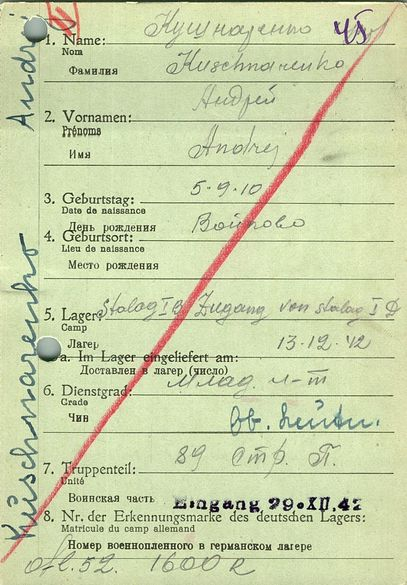 Кушнаренко 45
1. Name:
Nom
Фамилия Kuschnarenko
Андрей
2. Vornamen:
Prénoms
Имя Andrej
3. Geburtstag: 5.9.10
Date de naissance
День рождения
4. Geburtsort:
Lieu de naissance
Место рождения
5. Lager: Stalag I B Zugang von Stalag I D
Camp
Лагер 13.12.42
a. Im Lager eingeliefert am:
Доставлен в лагер (число)
6. Dienstgrad: Млад. л-т
Grade
Чин
7. Truppenteil: 89 Стр. П.
Unité
Воинская часть Eingang 29.XII.42
8. Nr. der Erkennungsmarke des deutschen Lagers:
Matricule du camp allemand
Номер военнопленного в германском лагере
Ofl. 52. 1600 R
Kuschnarenko Andrej